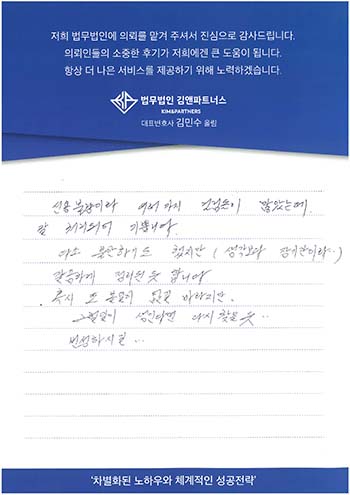 저희 법무법인에 의뢰를 맡겨 주셔서 진심으로 감사드립니다.
의뢰인들의 소중한 후기가 저희에겐 큰 도움이 됩니다.
항상 더 나은 서비스를 제공하기 위해 노력하겠습니다.
법무법인 김앤파트너스
KIM&PARTNERS
대표변호사 김민수 올림
신용불량이라 여러가지 많았는데.
잘 처리되어 기쁩니다
다소 불안하기도 했지만 (생각보다 장기간이라..)
깔끔하게 정리된 듯 합니다
혹시 또 없길 바라지만.
그럴일이 생긴다면 다시 찾을 듯..
번성하시길..
'차별화된 노하우와 체계적인 성공전략'